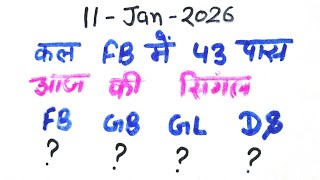 11-Jan-2026
कल FB में 43 पास
आज की सिंगल
FB GB GL DS
? ? ? ?